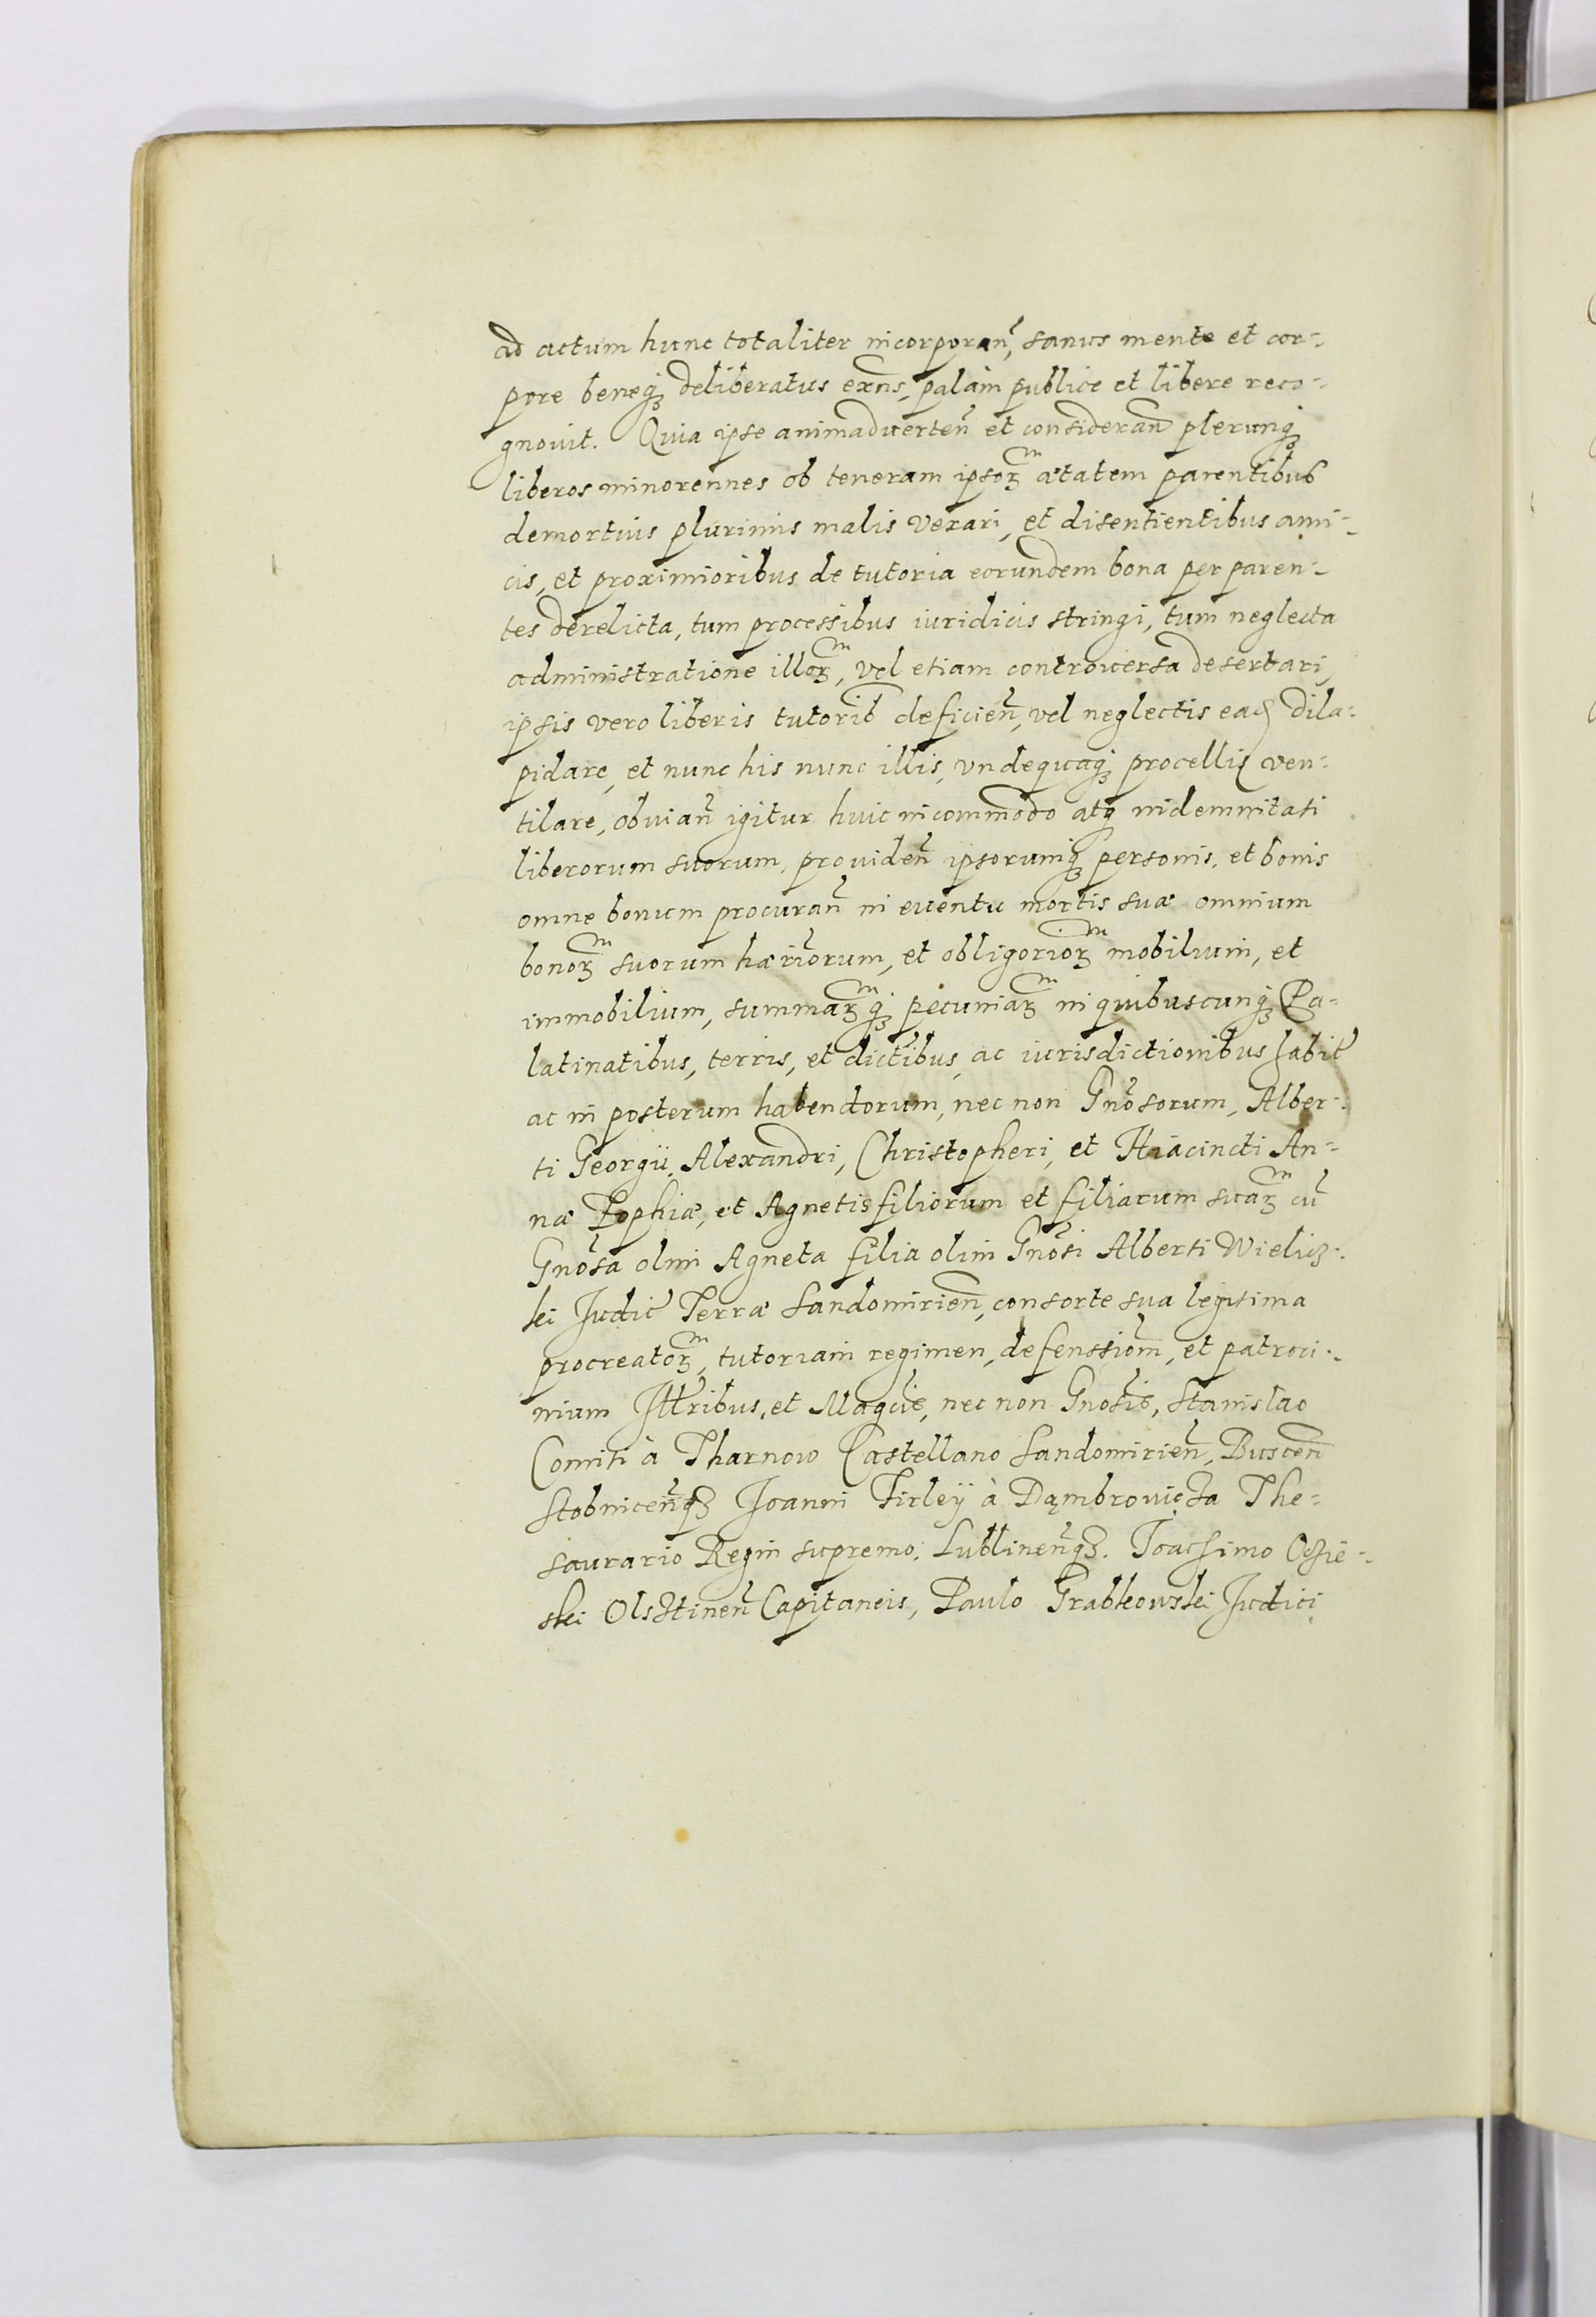 ad actum hunc totaliter incorporan̄, sanus mente et cor-
pore beneq̨ deliberatus exn̄s, palàm publice et libere reco-
gnovit. Quia ipse animadverten̄ et consideran̄ plerunq̨
liberos minorennes ob teneram ipsoꝝ ætatem parentibus
demortuis plurimis malis vexari, et disentientibus ami-
cis, et proximioribus de tutoria eorundem bona per paren-
tes derelicta, tum processibus iuridicis stringi, tum neglecta
administratione illoꝝ, vel etiam controversa desertari,
ipsis vero liberis tutorib deficien̄, vel neglectis ead dila-
pidare, et nunc his nunc illis, undequaq̨ procellis ven-
tilare, obvian̄ igitur huic incommodo atq̨ indemnitati
liberorum suorum, providen̄ ipsorumq̨ personis, et bonis
omne bonum procuran̄ in eventu mortis suæ omnium
bonoꝝ suorum hæriorum, et obligorioꝝ mobilium, et
immobilium, summaꝝq̨ pecuniaꝝ in quibuscunq̨ Pa-
latinatibus, terris, et dictibus, ac iurisdictionibus habit
ac in posterum habendorum, nec non Gn̄osorum, Alber-
ti Georgij, Alexandri, Christopheri, et Hiacincti An-
næ Zophiæ, et Agnetis filiorum et filiarum suaꝝ cū
Gn̄osa olim Agneta filia olim Gn̄osi Alberti Wielicz-
ki Judic Terræ Sandomirien̄, consorte sua legitima
procreatoꝝ, tutoriam regimen, defenssiom̄, et patroci-
nium Illribus, et Magcis, nec non Gnosis, Stanislao
Comiti à Tharnow Castellano Sandomirien̄, Buscen̄
Stobnicen̄qꝫ Joanni Firleÿ à Dąmbrowicza The-
saurario Regni supremo, Lublinen̄qꝫ. Joachimo Ocie-
ski Olsztinen̄ Capitaneis, Paulo Grabkowski Judici